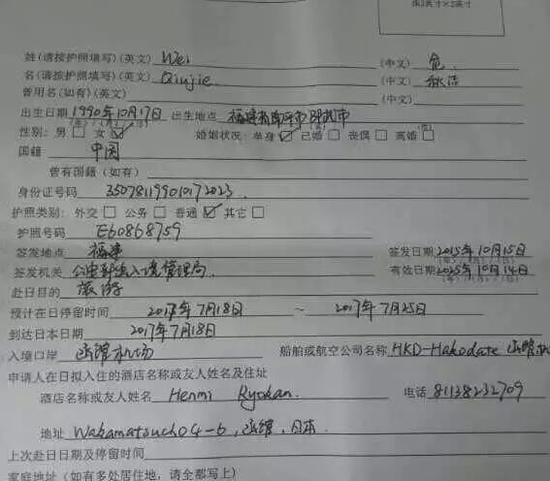 米2英寸×2英寸
姓(请按护照填写)(英文) Wei (中文) 危
名(请按护照填写)(英文) Qiujie (中文) 秋洁
曾用名(如有)(英文) (中文)
出生日期 1990年10月17日 出生地点 福建省南平市邵武市
(年)/(月)/(日)
性别：男□ 女☑ 婚姻状况：单身☑ 已婚□ 丧偶□ 离婚□
国籍 中国
曾有国籍(如有)
身份证号码 350781199010172023
护照类别：外交□ 公务□ 普通☑ 其它□
护照号码 E60868759
签发地点 福建 签发日期 2015年10月15日
签发机关 公安部出入境管理局 有效日期 2025年10月14日
赴日目的 旅游
预计在日停留时间 2017年7月18日 ~ 2017年7月25日
到达日本日期 2017年7月18日
入境口岸 函馆机场 船舶或航空公司名称 HKD-Hakodate 函馆机
申请人在日拟入住的酒店名称或友人姓名及住址
酒店名称或友人姓名 Henmi Ryokan 电话 81138232709
地址 Wakamatsucho4-6,函馆,日本
上次赴日日期及停留时间
家庭地址(如有多处居住地，请全部写上)